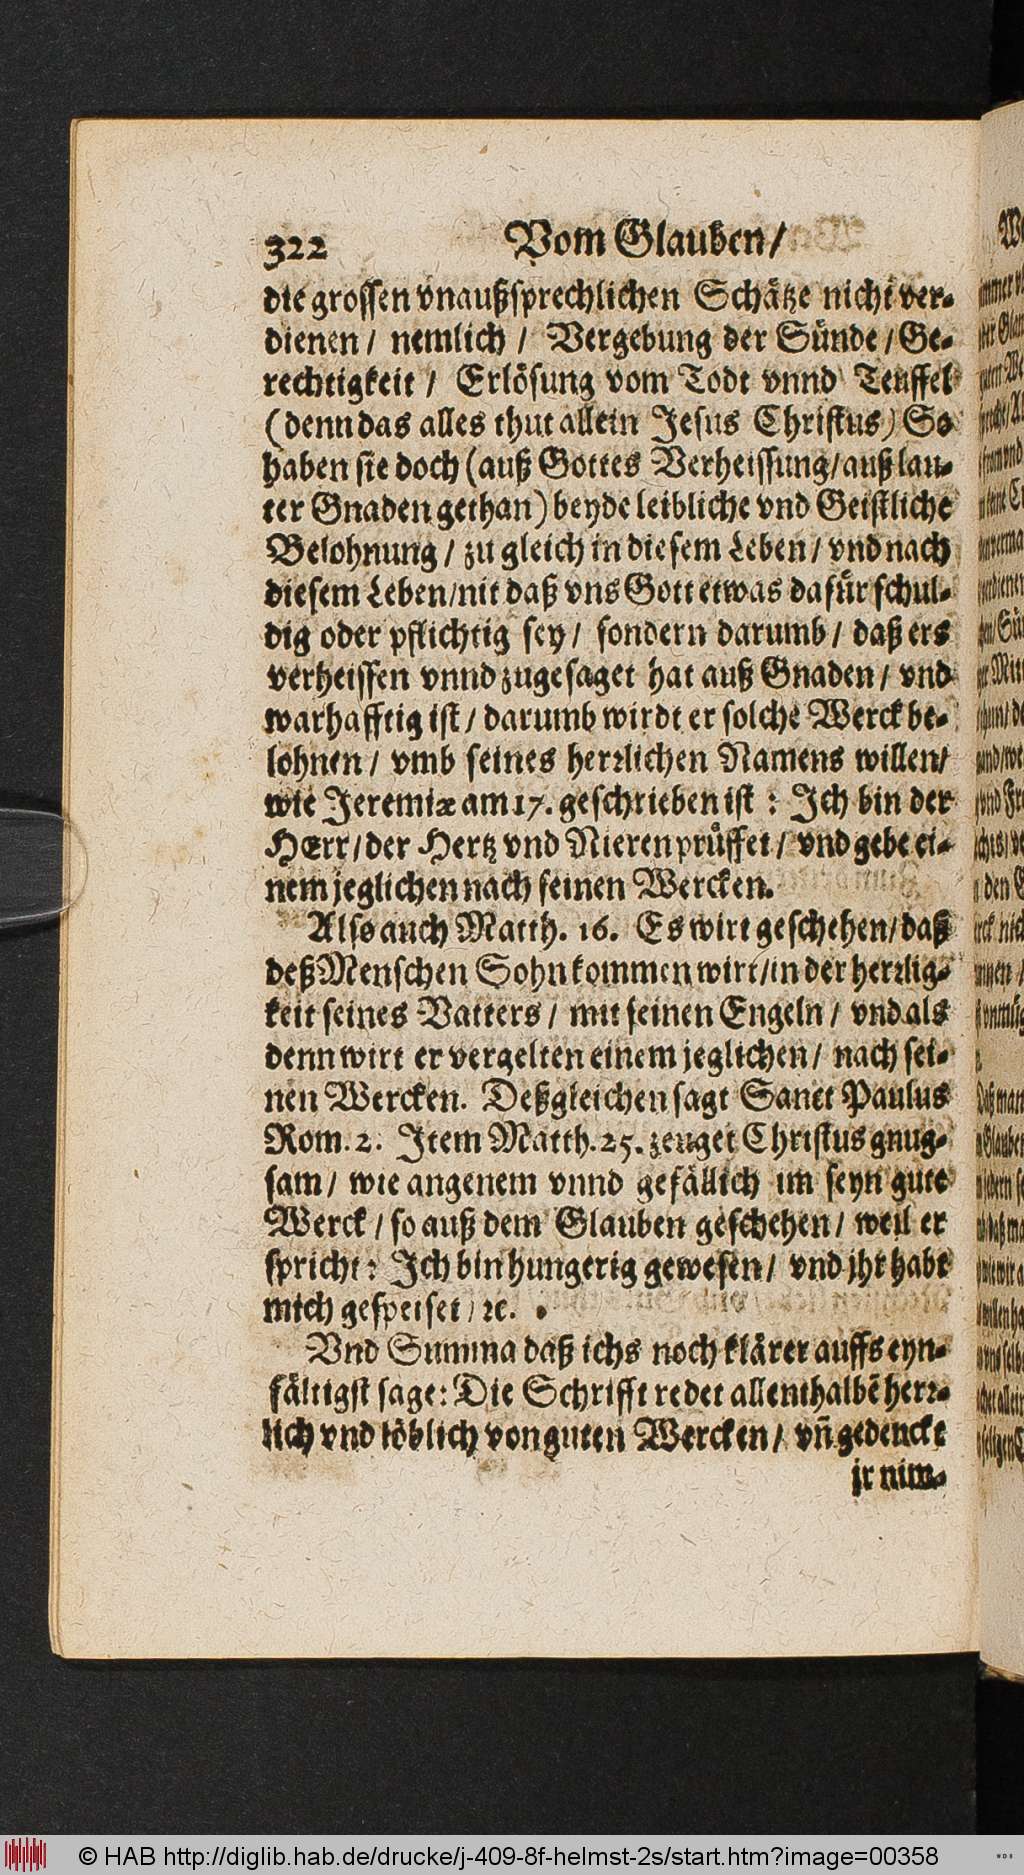 322 Vom Glauben/
die grossen vnaußsprechlichen Schätze nicht ver-
dienen / nemlich / Vergebung der Sünde / Ge-
rechtigkeit / Erlösung vom Todt vnnd Teuffel
(denn das alles thut allein Jesus Christus) So
haben sie doch (auß Gottes Verheissung/auß lau-
ter Gnaden gethan) beyde leibliche vnd Geistliche
Belohnung / zu gleich in diesem Leben / vnd nach
diesem Leben/nit daß vns Gott etwas dafür schul-
dig oder pflichtig sey / sondern darumb / daß ers
verheissen vnnd zugesaget hat auß Gnaden / vnd
warhafftig ist / darumb wirdt er solche Werck be-
lohnen / vmb seines herrlichen Namens willen/
wie Jeremiæ am 17. geschrieben ist : Ich bin der
HErr/der Hertz vnd Nieren prüffet / vnd gebe ei-
nem jeglichen nach seinen Wercken.
Also auch Matth. 16. Es wirt geschehen/daß
deß Menschen Sohn kommen wirt/in der herrlig-
keit seines Vatters / mit seinen Engeln / vnd als
denn wirt er vergelten einem jeglichen / nach sei-
nen Wercken. Deßgleichen sagt Sanct Paulus
Rom. 2. Item Matth. 25. zeuget Christus gnug-
sam / wie angenem vnnd gefällich im seyn gute
Werck / so auß dem Glauben geschehen / weil er
spricht : Ich bin hungerig gewesen / vnd jhr habt
mich gespeiset / ꝛc.
Vnd Summa daß ichs noch klärer auffs eyn-
fältigst sage: Die Schrifft redet allenthalbē herr-
lich vnd löblich von guten Wercken / vñ gedenckt
jr nim-
© HAB http://diglib.hab.de/drucke/j-409-8f-helmst-2s/start.htm?image=00358